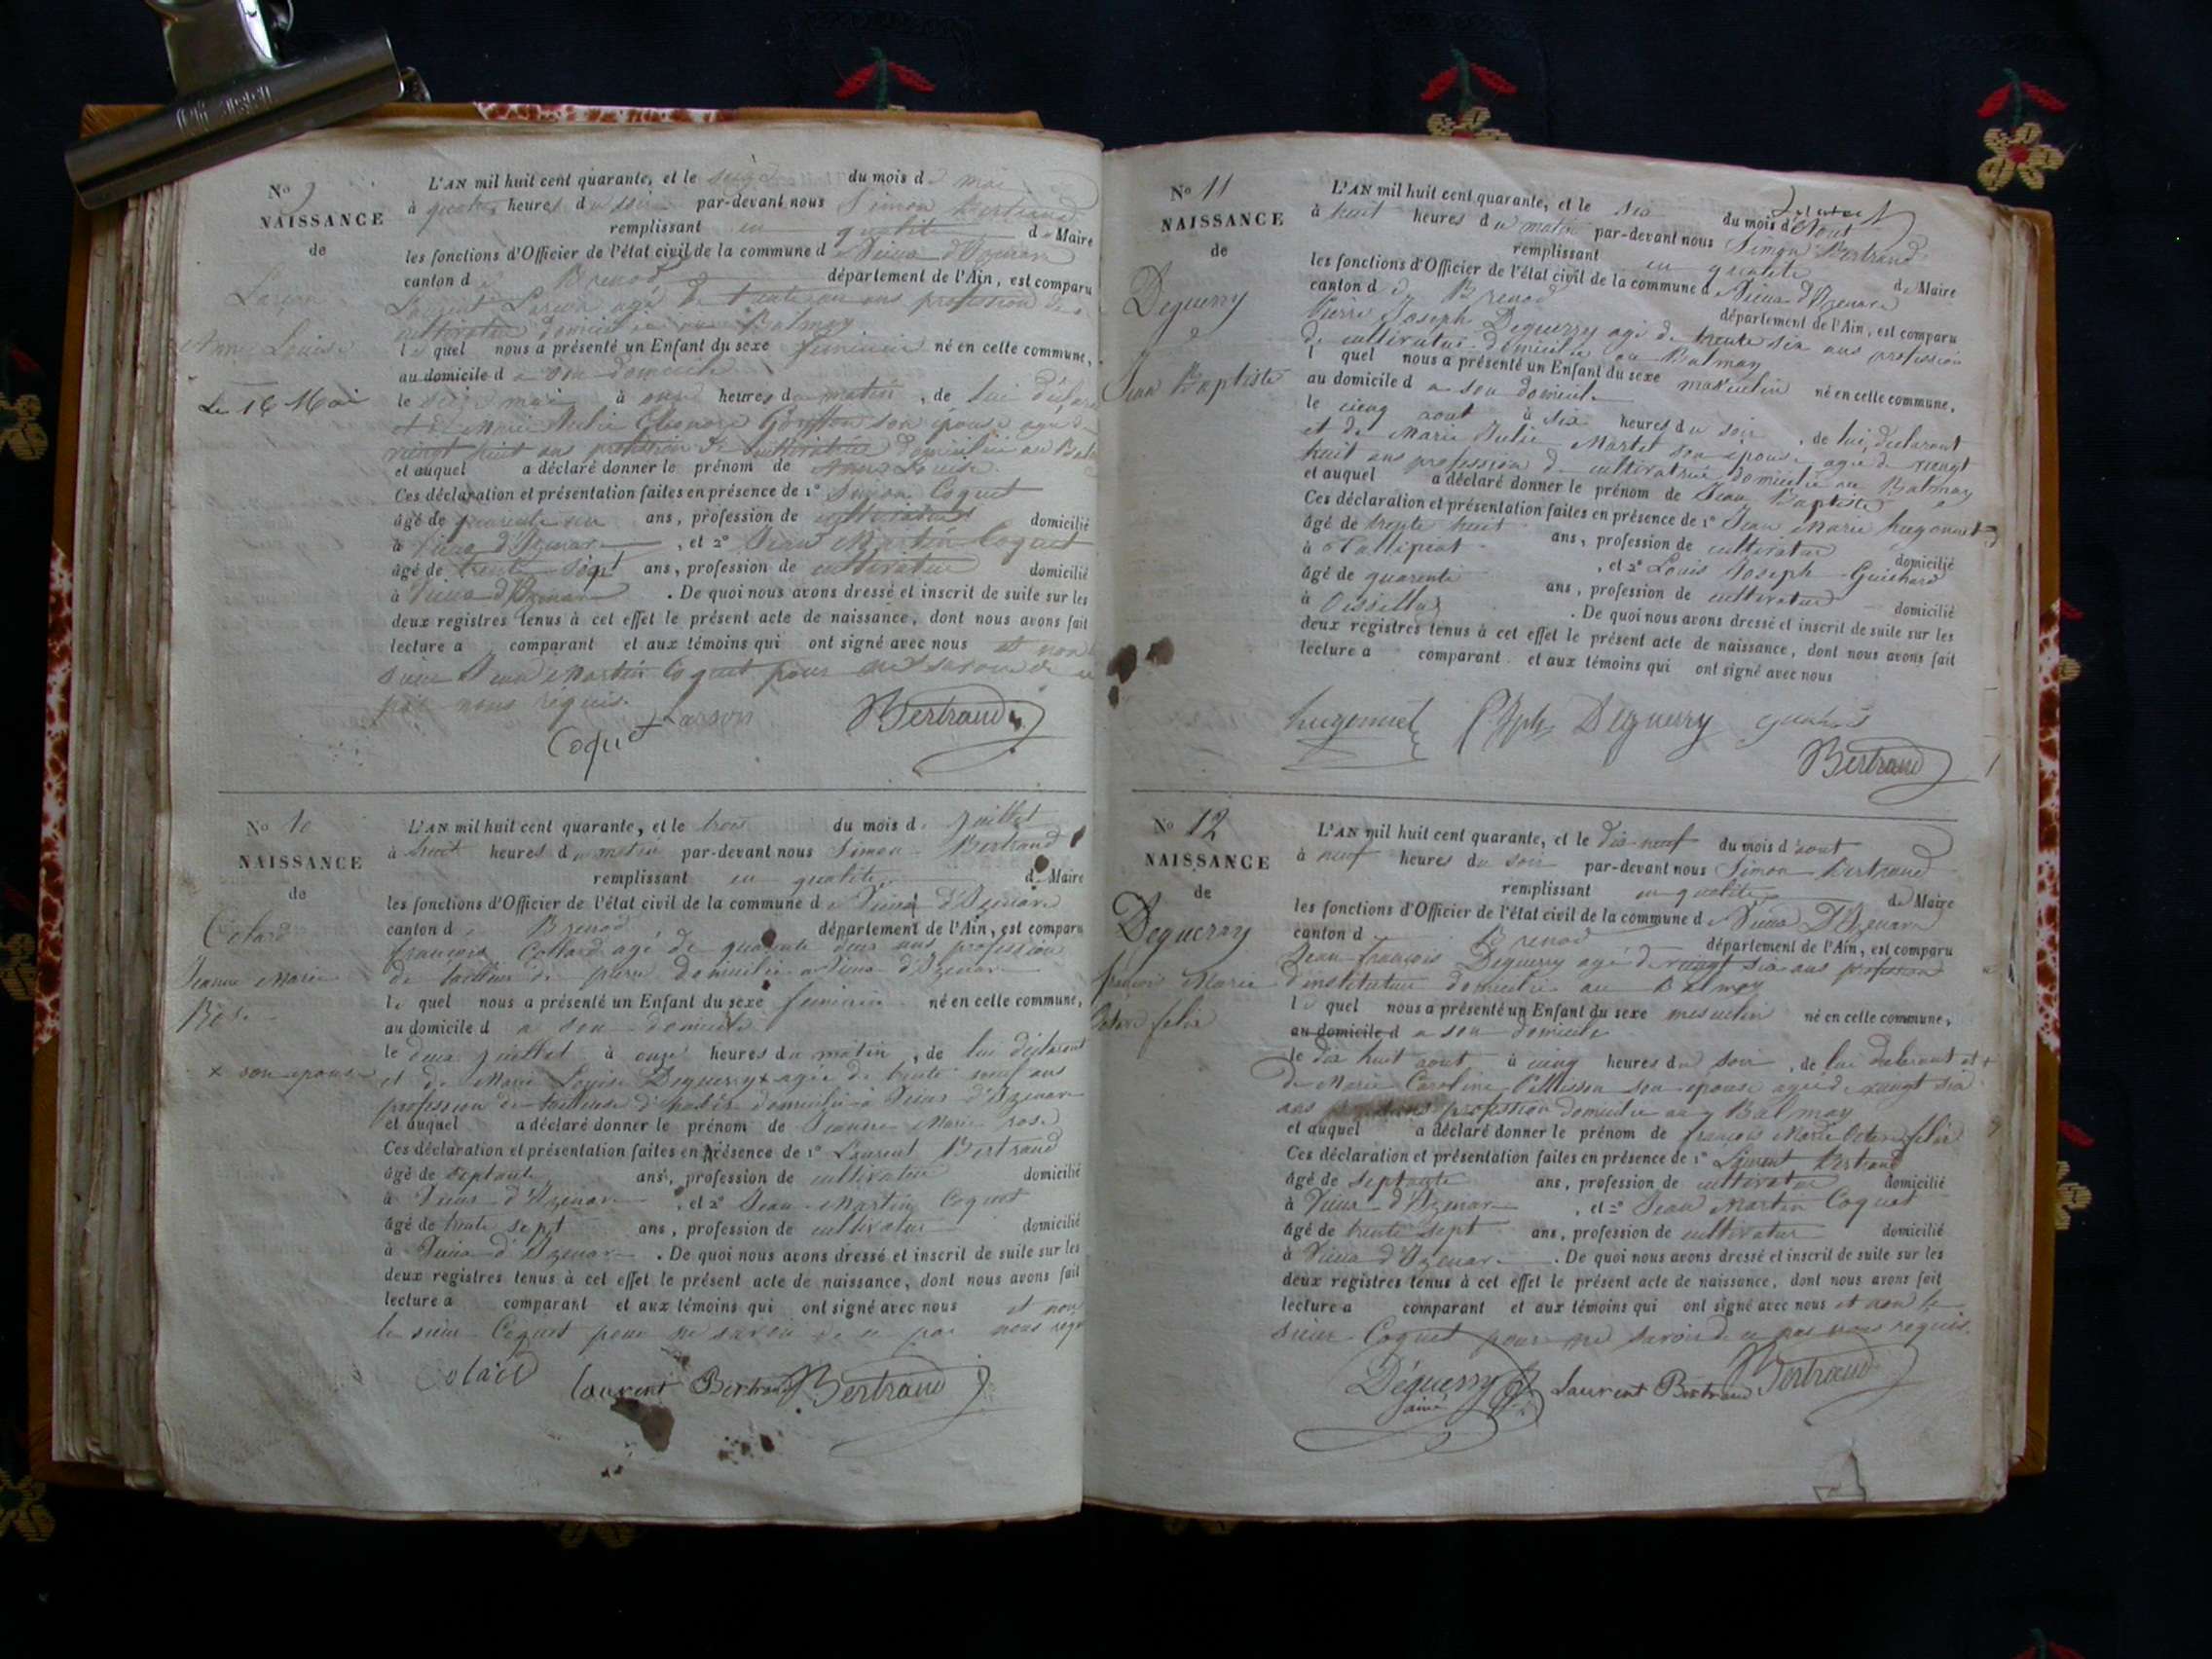 No 9
NAISSANCE
de
Anne Louise
Le 16 Mai
L'AN mil huit cent quarante, et le seize du mois de mai
à quatre heures du soir par-devant nous Simon Bertrand
remplissant en qualité de Maire
les fonctions d'Officier de l'état civil de la commune de Vieux d'Izenave
canton de Brenod département de l'Ain, est comparu
Laurent agé de trente un ans profession de
cultivateur domicilié au Balmay
le quel nous a présenté un Enfant du sexe feminin né en cette commune,
au domicile d à son domicile
le seize mai à onze heures du matin, de lui déclarant
et de Marie Julie Eleonore son épouse agée de
vingt huit ans profession de cultivatrice domiciliée au
et auquel a déclaré donner le prénom de Anne Louise.
Ces déclaration et présentation faites en présence de 1° Simon Coquet
âgé de quarante ans, profession de cultivateur domicilié
à Vieux d'Izenave, et 2° Jean Martin Coquet
âgé de trente sept ans, profession de cultivateur domicilié
à Vieux d'Izenave. De quoi nous avons dressé et inscrit de suite sur les
deux registres tenus à cet effet le présent acte de naissance, dont nous avons fait
lecture a comparant et aux témoins qui ont signé avec nous et non
sieur Jean Martin Coquet pour ne savoir de ce
par nous requis.
Coquet Bertrand
No 10
NAISSANCE
de
Colard
Jeanne Marie
Rose
x son epouse
L'AN mil huit cent quarante, et le trois du mois de juillet
à huit heures du matin par-devant nous Simon Bertrand
remplissant en qualité de Maire
les fonctions d'Officier de l'état civil de la commune de Vieux d'Izenave
canton de Brenod département de l'Ain, est comparu
françois Collard agé de quarante deux ans profession
de tailleur de pierre domicilié a Vieux d'Izenave
le quel nous a présenté un Enfant du sexe feminin né en cette commune,
au domicile d a son domicile
le deux juillet à onze heures du matin, de lui déclarant
et de Marie Louise Deguerry x agée de trente neuf ans
profession de tailleuse d'habits domiciliée à Vieux d'Izenave
et auquel a déclaré donner le prénom de Jeanne Marie rose
Ces déclaration et présentation faites en présence de 1° Laurent Bertrand
âgé de septante ans, profession de cultivateur domicilié
à Vieux d'Izenave, et 2° Jean Martin Coquet
âgé de trente sept ans, profession de cultivateur domicilié
à Vieux d'Izenave. De quoi nous avons dressé et inscrit de suite sur les
deux registres tenus à cet effet le présent acte de naissance, dont nous avons fait
lecture a comparant et aux témoins qui ont signé avec nous et non
le sieur Coquet pour ne savoir de ce par nous requis
Colard Laurent Bertrand Bertrand
No 11
NAISSANCE
de
Deguerry
Jean Baptiste
L'AN mil huit cent quarante, et le six du mois d'Aout
à huit heures du matin par-devant nous Simon Bertrand
remplissant en qualité de Maire
les fonctions d'Officier de l'état civil de la commune de Vieux d'Izenave
canton de Brenod département de l'Ain, est comparu
Pierre Joseph Deguerry agé de trente six ans profession
de cultivateur domicilié au Balmay
l quel nous a présenté un Enfant du sexe masculin né en cette commune,
au domicile d a son domicile
le cinq aout à six heures du soir, de lui declarant
et de Marie Julie Martel son epouse agée de vingt
huit ans profession de cultivatrice domiciliée au Balmay
et auquel a déclaré donner le prénom de Jean Baptiste
Ces déclaration et présentation faites en présence de 1° Jean Marie hugonnet
âgé de trente huit ans, profession de cultivateur domicilié
à, et 2° Louis Joseph Guichard
âgé de quarente ans, profession de cultivateur domicilié
à Oisellaz. De quoi nous avons dressé et inscrit de suite sur les
deux registres tenus à cet effet le présent acte de naissance, dont nous avons fait
lecture a comparant et aux témoins qui ont signé avec nous
hugonnet Deguerry
Bertrand
No 12
NAISSANCE
de
Deguerry
françois Marie
felix
L'AN mil huit cent quarante, et le dix neuf du mois d'aout
à neuf heures du soir par-devant nous Simon Bertrand
remplissant en qualité de Maire
les fonctions d'Officier de l'état civil de la commune de Vieux D'Izenave
canton de Brenod département de l'Ain, est comparu
Jean françois Deguerry agé de vingt six ans profession
d'instituteur domicilié au Balmay
le quel nous a présenté un Enfant du sexe masculin né en cette commune,
au domicile d a son domicile
le dix huit aout à cinq heures du soir, de lui declarant et
de Marie Caroline Pellisson son epouse agée de vingt six
ans profession domiciliée au Balmay
et auquel a déclaré donner le prénom de françois Marie felix
Ces déclaration et présentation faites en présence de 1° Laurent Bertrand
âgé de septante ans, profession de cultivateur domicilié
à Vieux d'Izenave, et 2° Jean Martin Coquet
âgé de trente sept ans, profession de cultivateur domicilié
à Vieux d'Izenave. De quoi nous avons dressé et inscrit de suite sur les
deux registres tenus à cet effet le présent acte de naissance, dont nous avons fait
lecture a comparant et aux témoins qui ont signé avec nous et non le
sieur Coquet pour ne savoir de ce par nous requis.
Déguerry Laurent Bertrand Bertrand
ainé